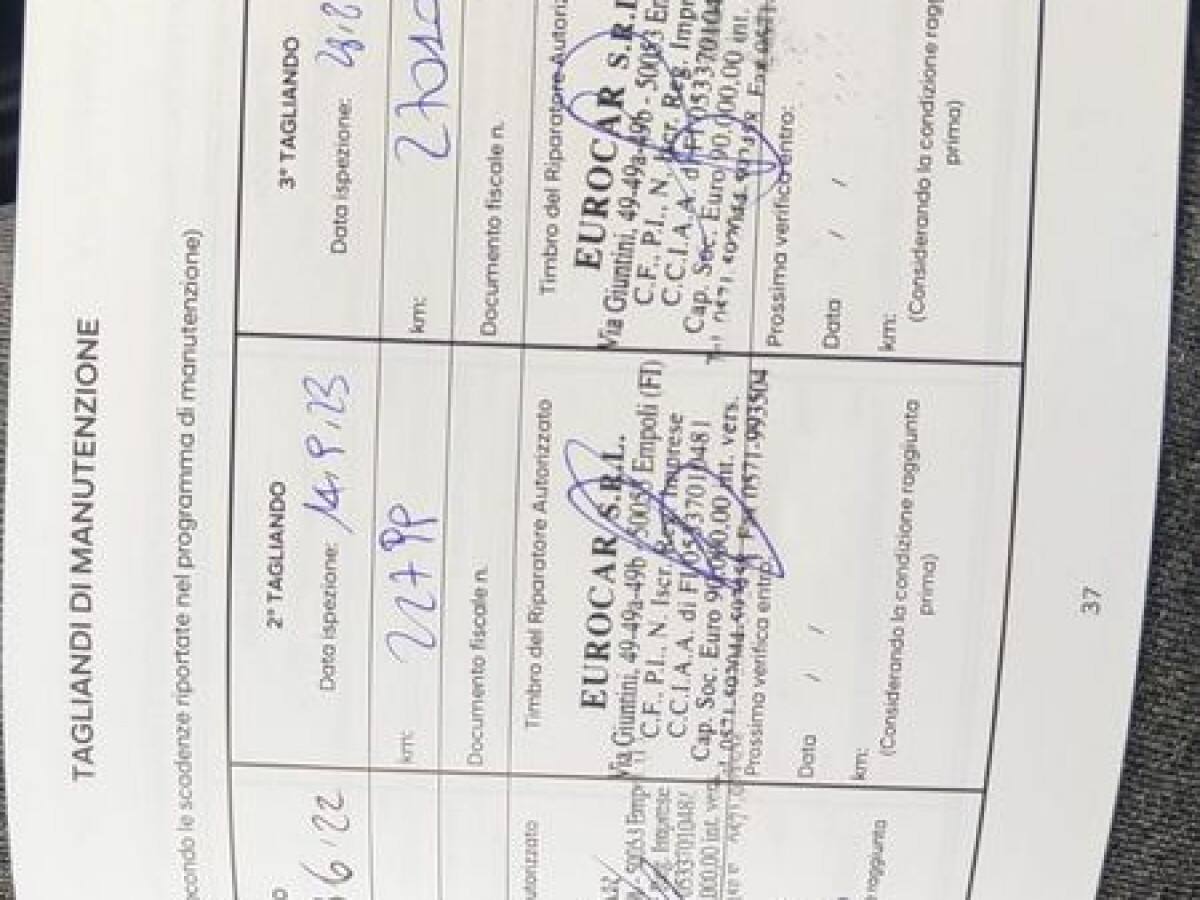 TAGLIANDI DI MANUTENZIONE
econdo le scadenze riportate nel programma di manutenzione)
6 22
utorizzato
50053 Emp
Imprese
05337010481
.000,00 int. vers.
raggiunta
2° TAGLIANDO
Data ispezione:
km:
Documento fiscale n.
Timbro del Riparatore Autorizzato
EUROCAR S.R.L.
Via Giuntini, 49-49a-49b 50053 Empoli (FI)
C.F., P.I., N. Iscr. Reg. Imprese
C.C.I.A.A. di FI 05337010481
Cap. Soc. Euro 90.000,00 int. vers.
0571.993504
Prossima verifica entro:
Data / /
km:
(Considerando la condizione raggiunta
prima)
3° TAGLIANDO
Data ispezione:
km: 27010
Documento fiscale n.
Timbro del Riparatore Autoriz
EUROCAR S.R.L
Via Giuntini, 49-49a-49b - 50053 En
C.F., P.I., N. Iscr. Reg. Impr
C.C.I.A.A. di FI 0533701048
Cap. Soc. Euro 90.000,00 int.
Prossima verifica entro:
Data / /
km:
(Considerando la condizione ragg
prima)
37